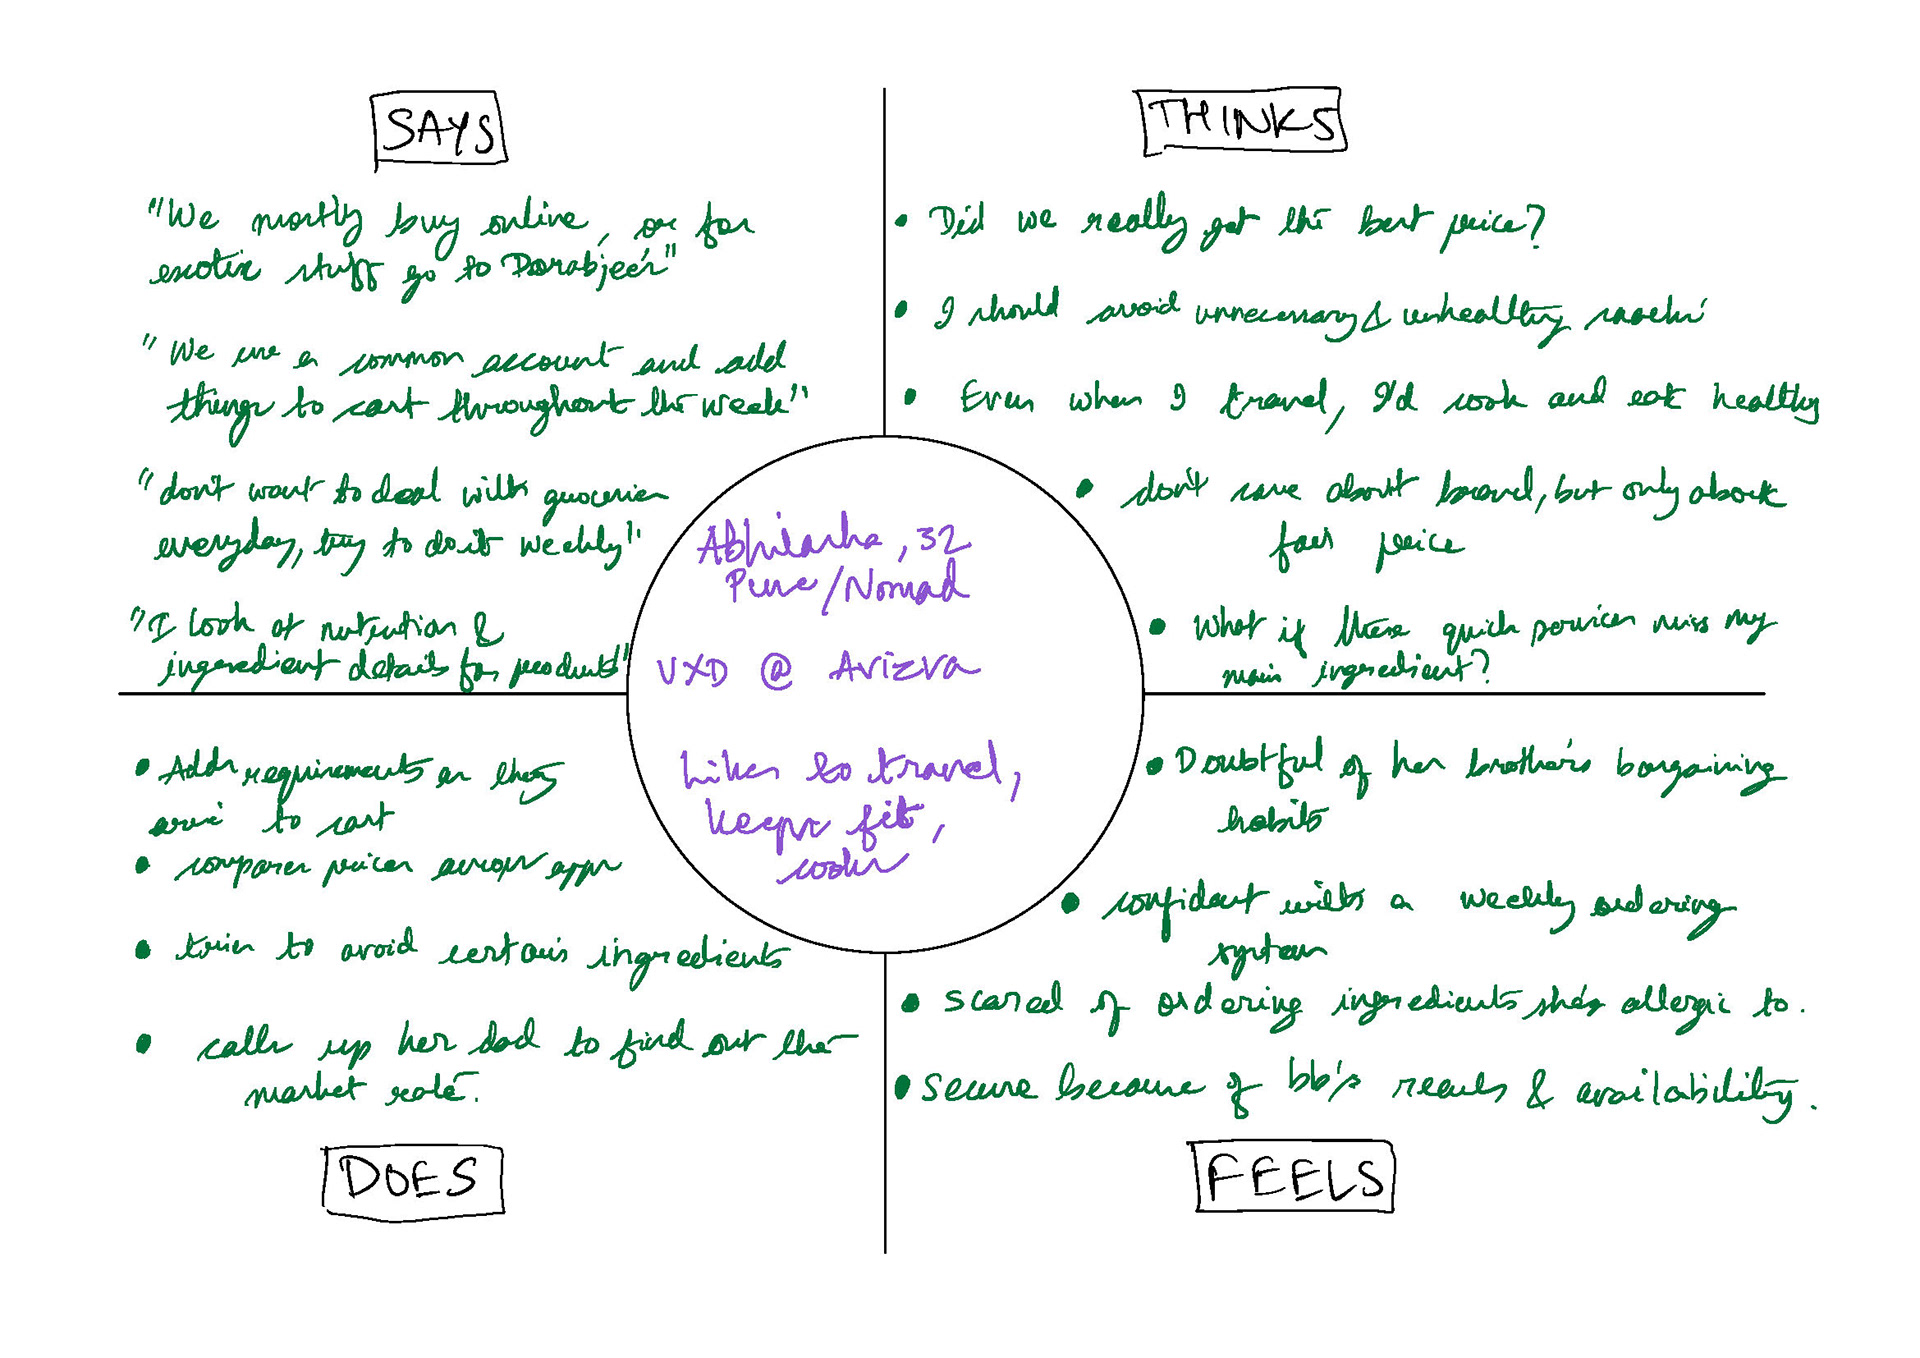 SAYS
"We mostly buy online, or for
exotic stuff go to Dorabjee's"
"We use a common account and add
things to cart throughout the week"
"don't want to deal with groceries
everyday, try to do it weekly"
"I look at nutrition &
ingredient details for products"
THINKS
• Did we really get the best price?
• I should avoid unnecessary & unhealthy snacks
• Even when I travel, I'd cook and eat healthy
• don't care about brand, but only about
fair price
• What if these quick services miss my
main ingredient?
Abhilasha, 32
Pune/Nomad
VXD @ Avizva
Likes to travel,
keeps fit,
cooks
• Adds requirements as they
arise to cart
• compares prices across apps
• tries to avoid certain ingredients
• calls up her dad to find out the
market rate.
DOES
• Doubtful of her brother's bargaining
habits
• confident with a weekly ordering
system
• Scared of ordering ingredients she's allergic to.
• Secure because of bb's reach & availability.
FEELS